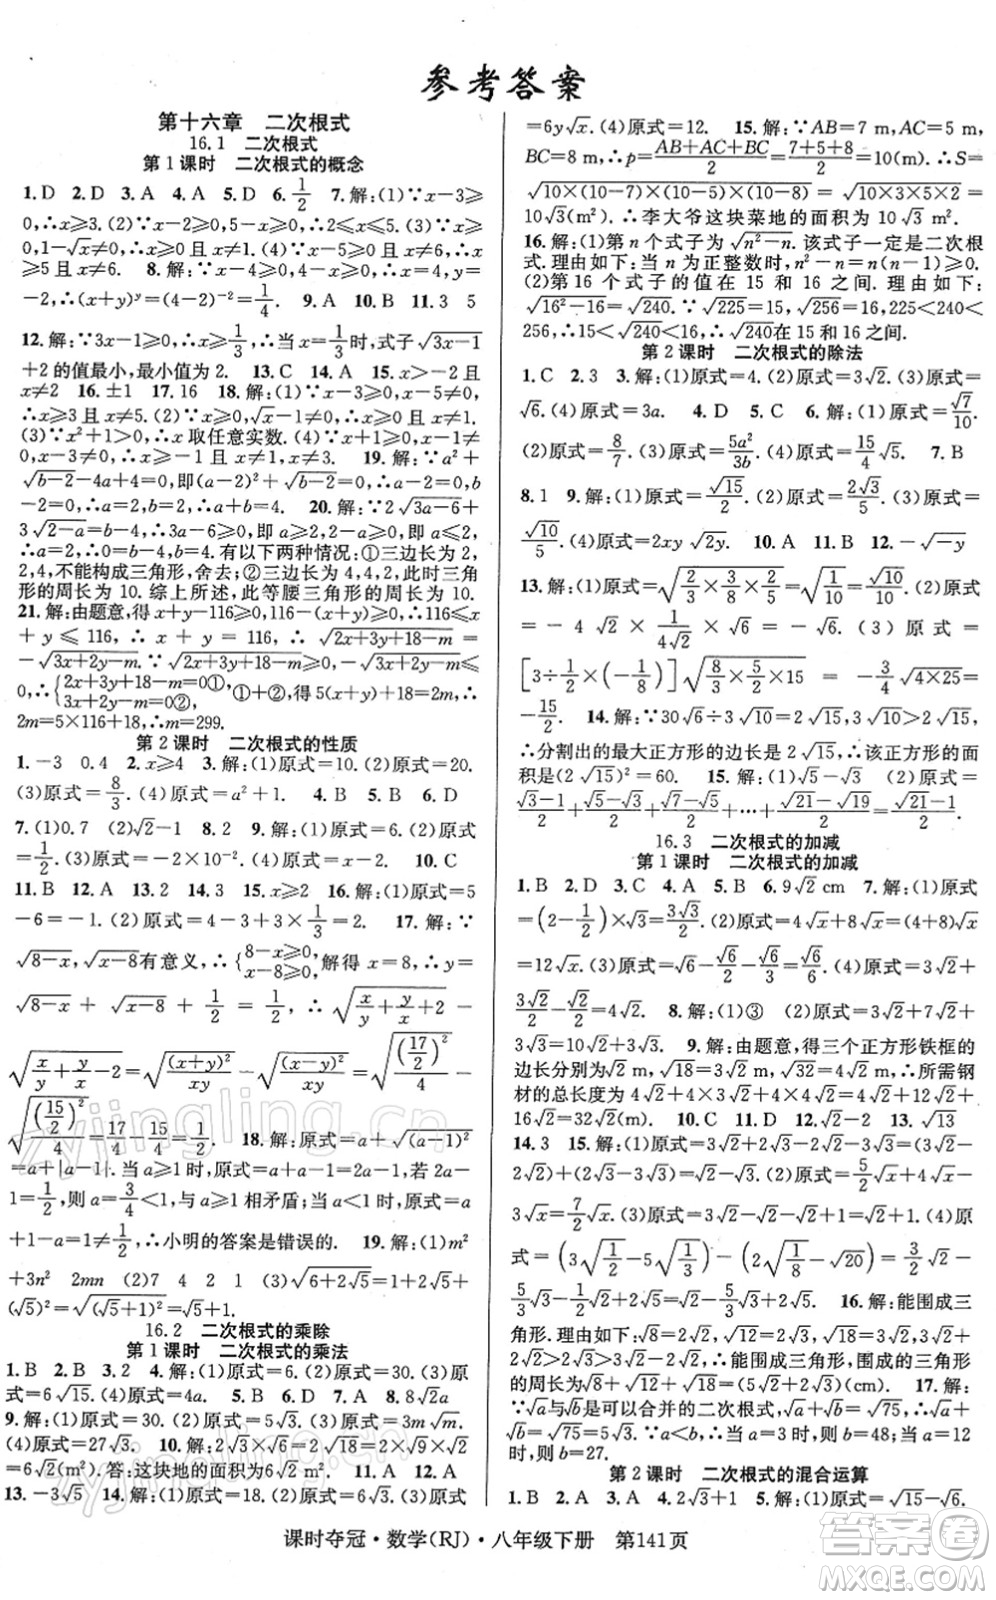 参考答案
第十六章 二次根式
16.1 二次根式
第1课时 二次根式的概念
1.D 2.D 3.A 4.A 5.D 6.1/2 7.解:(1)∵x-3≥
0,∴x≥3.(2)∵x-2≥0,5-x≥0,∴2≤x≤5.(3)∵x≥
0,1-√x≠0,∴x≥0且x≠1.(4)∵x-5≥0,6-x≠0,∴x
≥5且x≠6 8.解:∵x-4≥0,4-x≥0,∴x=4,y=
-2,∴(x+y)^y=(4-2)^-2=1/4. 9.A 10.B 11.3 5
12.解:∵3x-1≥0,∴x≥1/3,∴当x=1/3时,式子√(3x-1)
+2的值最小,最小值为2. 13.C 14.A 15.x>-2且
x≠2 16.±1 17.16 18.解:(1)∵x-3≥0,x-5≠0,
∴x≥3且x≠5.(2)∵x≥0,√x-1≠0,∴x≥0且x≠1.
(3)∵x²+1>0,∴x取任意实数.(4)∵x+1≥0,x≠0,
∴x≥-1且x≠0. 19.解:∵a²+
√(b-2)-4a+4=0,即(a-2)²+√(b-2)=0,∴a=2,b
=2,∴√(2ab)=√8=2√2. 20.解:∵b=2√(3a-6)+
3√(2-a)+4,∴3a-6≥0,即a≥2,2-a≥0,即a≤2,
∴a=2,∴b=4.有以下两种情况:①三边长为2,
2,4,不能构成三角形,舍去;②三边长为4,4,2,此时三角
形的周长为10.综上所述,此等腰三角形的周长为10.
21.解:由题意,得x+y-116≥0,116-(x+y)≥0,∴116≤x
+y≤116,∴x+y=116,∴√(2x+3y+18-m)=
-√(3x+2y-m).∵√(2x+3y+18-m)≥0,√(3x+2y-m)≥
0,∴{2x+3y+18-m=0①,
3x+2y-m=0②,①+②,得5(x+y)+18=2m,∴
2m=5×116+18,∴m=299.
第2课时 二次根式的性质
1.-3 0.4 2.x≥4 3.解:(1)原式=10.(2)原式=20.
(3)原式=8/3.(4)原式=a²+1. 4.B 5.B 6.D
7.(1)0.7 (2)√2-1 8.2 9.解:(1)原式=6.(2)原式
=1/2.(3)原式=-2×10²=-200.(4)原式=x-2. 10.C
11.B 12.A 13.2 14.2 15.x≥2 16.解:(1)原式=5
-6=-1.(2)原式=4-3+3×1/3=2. 17.解:∵
√(8-x),√(x-8)有意义,∴{8-x≥0,
x-8≥0,解得x=8,∴y=
√(8-x)+√(x-8)+1/2=1/2,∴√(x/y+y/x+2)-
√(x/y+y/x-2)=√((x+y)²/xy)-√((x-y)²/xy)=√((17/2)²/4)-
√((15/2)²/4)=17/4-15/4=1/2. 18.解:原式=a+√((a-1)²)
=a+|a-1|.当a≥1时,原式=a+a-1=2a-1,若2a-
1=1/2,则a=3/4<1,与a≥1相矛盾;当a<1时,原式=a-
a+1=1≠1/2,∴小明的答案是错误的. 19.解:(1)m²
+3n² 2mn (2)7 4 2 1 (3)√(6+2√5)=√(1+2√5+
(√5)²)=√((√5+1)²)=√5+1.
16.2 二次根式的乘除
第1课时 二次根式的乘法
1.B 2.B 3.2 4.解:(1)原式=6.(2)原式=30.(3)原
式=6√15.(4)原式=4a. 5.B 6.D 7.A 8.8√2a
9.解:(1)原式=30.(2)原式=5√3.(3)原式=3m√m.
(4)原式=27√3. 10.解:2√3×√6=2√3×√3×√2=
6√2(m²).答:这块地的面积为6√2 m². 11.A 12.A
13.-3√5 14.解:(1)原式=2√6.(2)原式=6√3.(3)原式
=6y√x.(4)原式=12. 15.解:∵AB=7 m,AC=5 m,
BC=8 m,∴p=(AB+AC+BC)/2=(7+5+8)/2=10(m).∴S=
√(10×(10-7)×(10-5)×(10-8))=√(10×3×5×2)=
10√3(m²).∴李大爷这块菜地的面积为10√3 m².
16.解:(1)第n个式子为√(n²-n).该式子一定是二次根
式.理由如下:当n为正整数时,n²-n=n(n-1)≥0.
(2)第16个式子的值在15和16之间.理由如下:
√(16²-16)=√240.∵√225=15,√256=16,225<240<
256,∴15<√240<16,∴√240在15和16之间.
第2课时 二次根式的除法
1.C 2.3 3.解:(1)原式=4.(2)原式=3√2.(3)原式=
√6.(4)原式=3a. 4.D 5.C 6.解:(1)原式=√7/10.
(2)原式=8/7.(3)原式=5a²/3b.(4)原式=15/4√5. 7.B
8.1 9.解:(1)原式=√15/2.(2)原式=2√3/5.(3)原式=
√10/5.(4)原式=2xy√2y. 10.A 11.B 12.-√-y
13.解:(1)原式=√(2/3×3/8×2/5)=√(1/10)=√10/10.(2)原式
=-4√2×1/(4√2)×√6=-√6.(3)原式=
[3÷1/2×(-1/8)]√(8/3×5/2×15)=-3/4√(4×25)=
-15/2. 14.解:∵30√6÷3√10=2√15,10√3>2√15,
∴分割出的最大正方形的边长是2√15,∴该正方形的面
积是(2√15)²=60. 15.解:(1)√5-√3(2)原式=
(√3-1)/2+(√5-√3)/2+(√7-√5)/2+…+(√21-√19)/2=(√21-1)/2.
16.3 二次根式的加减
第1课时 二次根式的加减
1.B 2.D 3.C 4.A 5.B 6.9√2 cm 7.解:(1)原式
=(2-1/2)×√3=3√3/2.(2)原式=4√x+8√x=(4+8)√x
=12√x.(3)原式=√6-√6/2-√6/3=√6/6.(4)原式=3√2+
√3/2-√2/2=5√2/2+√3/2. 8.解:(1)③ (2)原式=3√2+7√2+
3√3=10√2+3√3. 9.解:由题意,得三个正方形铁框的
边长分别为√2 m,√18=3√2 m,√32=4√2 m,∴所需钢
材的总长度为4√2+4×3√2+4×4√2=4√2+12√2+
16√2=32√2(m). 10.C 11.D 12.2√2 13.√13
14.3 15.解:(1)原式=3√2+2√3-2√2-3√3=(3√2-
2√2)+(2√3-3√3)=√2-√3.(2)原式=5/2√x+√x=
7/2√x.(3)原式=3√2-√2-√2=√2.(4)原
式=(3√(1/2)-5√(1/3))-(2√(1/8)-√20)=3/2√2-
5/3√3-1/2√2+2√5=√2-5/3√3+2√5. 16.解:能围成三
角形.∵√8+√18=2√2+3√2
=5√2>√32,∴能围成三角形,围成的三角形
的周长为√8+√18+√32=9√2. 17.解:
∵√a与√b是可以合并的二次根式,√a+√b=√75,∴√a+
√b=5√3.∵a<b,∴当a=3,则b=48;当a=
12,则b=27.
第2课时 二次根式的混合运算
1.B 2.A 3.D 4.√5 5.解:(1)原式=√15-√6-
课时夺冠·数学(RJ)·八年级下册 第141页
zyjingling.cn
zyjingling.cn
答案圈
MXQE.COM